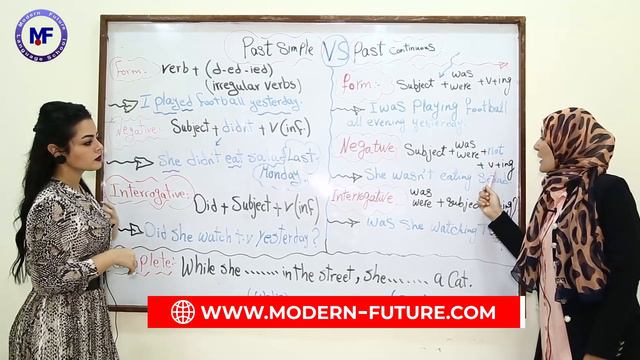 Modern Future
MF
Language School
Past Simple VS Past Continuous
Form: verb + (d-ed-ied)
(irregular verbs)
I played football yesterday.
Negative: Subject + didn't + V(inf.)
She didn't eat salad Last
Monday.
Interrogative:
Did + Subject + V(inf)
Did she watch t.v yesterday?
Form: Subject + was
were + V+ing
I was Playing football
all evening yesterday.
Negative: Subject + was
were + not
+ V+ing
She wasn't eating
Interrogative: was
were + subject
was she watching
plete: While she ........ in the street, she ........ a Cat.
WWW.MODERN-FUTURE.COM